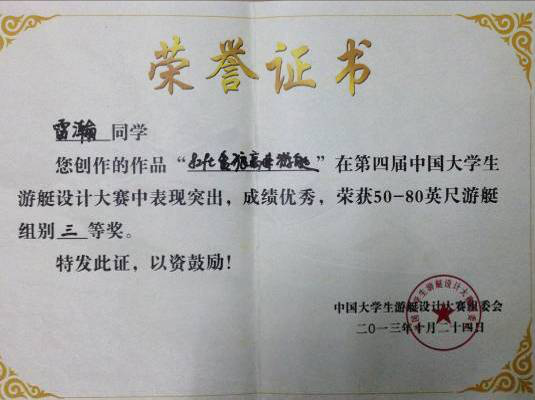 荣誉证书
雷瀚 同学
您创作的作品“游艇”在第四届中国大学生
游艇设计大赛中表现突出，成绩优秀，荣获50-80英尺游艇
组别三等奖。
特发此证，以资鼓励！
中国大学生游艇设计大赛组委会
二〇一三年十月二十四日